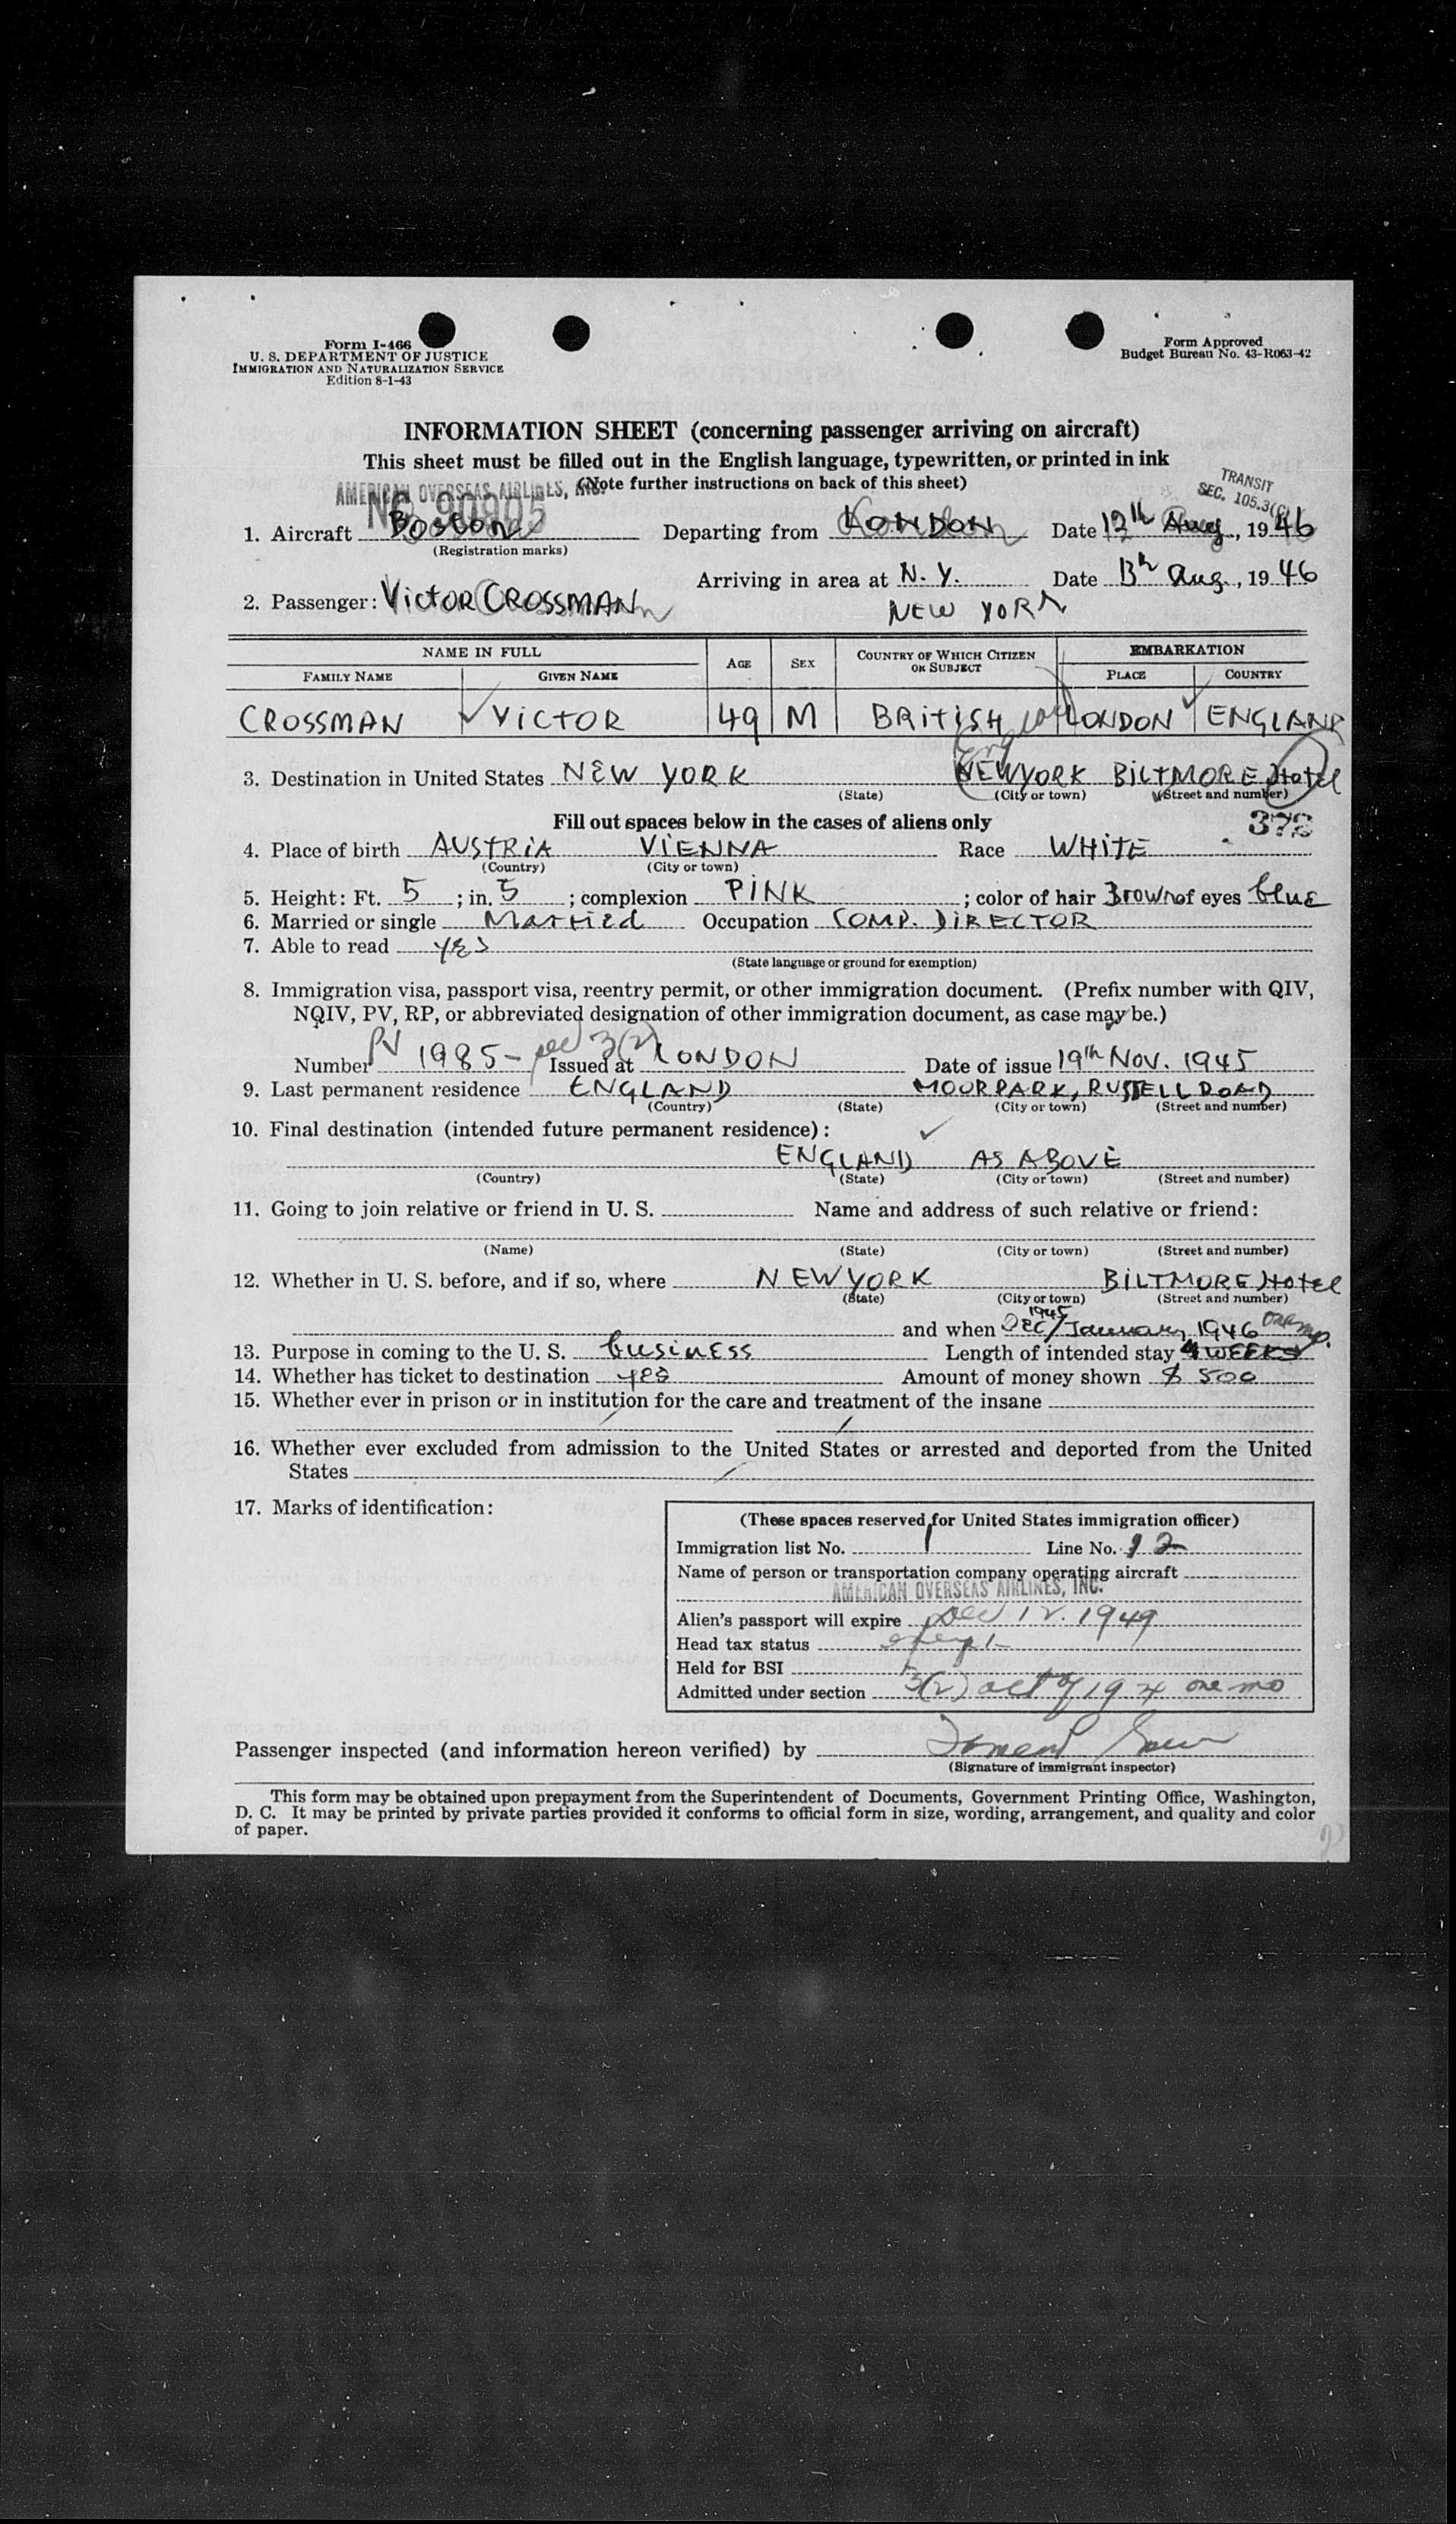 Form I-466
U. S. DEPARTMENT OF JUSTICE
IMMIGRATION AND NATURALIZATION SERVICE
Edition 8-1-43
Form Approved
Budget Bureau No. 43-R063-42
INFORMATION SHEET (concerning passenger arriving on aircraft)
This sheet must be filled out in the English language, typewritten, or printed in ink
AMERICAN OVERSEAS AIRLINES, INC. (Note further instructions on back of this sheet)
TRANSIT
SEC. 105.3(C)
NC 90905
1. Aircraft Departing from LONDON Date 12th Aug, 1946
(Registration marks)
Arriving in area at N. Y. Date 13th Aug., 1946
2. Passenger: Victor CROSSMAN NEW YORK
NAME IN FULL AGE SEX COUNTRY OF WHICH CITIZEN OR SUBJECT EMBARKATION
FAMILY NAME GIVEN NAME PLACE COUNTRY
CROSSMAN VICTOR 49 M BRITISH LONDON ENGLAND
3. Destination in United States NEW YORK NEWYORK BILTMORE Hotel
(State) (City or town) (Street and number)
Fill out spaces below in the cases of aliens only 372
4. Place of birth AUSTRIA VIENNA Race WHITE
(Country) (City or town)
5. Height: Ft. 5; in. 5; complexion PINK; color of hair Brown of eyes blue
6. Married or single Married Occupation COMP. DIRECTOR
7. Able to read yes
(State language or ground for exemption)
8. Immigration visa, passport visa, reentry permit, or other immigration document. (Prefix number with QIV,
NQIV, PV, RP, or abbreviated designation of other immigration document, as case may be.)
Number PV 1985- sec 3(2) Issued at LONDON Date of issue 19th Nov. 1945
9. Last permanent residence ENGLAND MOORPARK, RUSSELL ROAD
(Country) (State) (City or town) (Street and number)
10. Final destination (intended future permanent residence):
ENGLAND AS ABOVE
(Country) (State) (City or town) (Street and number)
11. Going to join relative or friend in U. S. Name and address of such relative or friend:
(Name) (State) (City or town) (Street and number)
12. Whether in U. S. before, and if so, where NEWYORK BILTMORE Hotel
(State) (City or town) (Street and number)
and when DEC 1945/January 1946 one mo.
13. Purpose in coming to the U. S. business Length of intended stay 4 WEEKS
14. Whether has ticket to destination yes Amount of money shown $ 500
15. Whether ever in prison or in institution for the care and treatment of the insane
16. Whether ever excluded from admission to the United States or arrested and deported from the United
States
17. Marks of identification:
(These spaces reserved for United States immigration officer)
Immigration list No. 1 Line No. 12
Name of person or transportation company operating aircraft
AMERICAN OVERSEAS AIRLINES, INC.
Alien's passport will expire Dec 12. 1949
Head tax status exempt
Held for BSI
Admitted under section 3(2) act of 1924 one mo
Passenger inspected (and information hereon verified) by
(Signature of immigrant inspector)
This form may be obtained upon prepayment from the Superintendent of Documents, Government Printing Office, Washington,
D. C. It may be printed by private parties provided it conforms to official form in size, wording, arrangement, and quality and color
of paper.